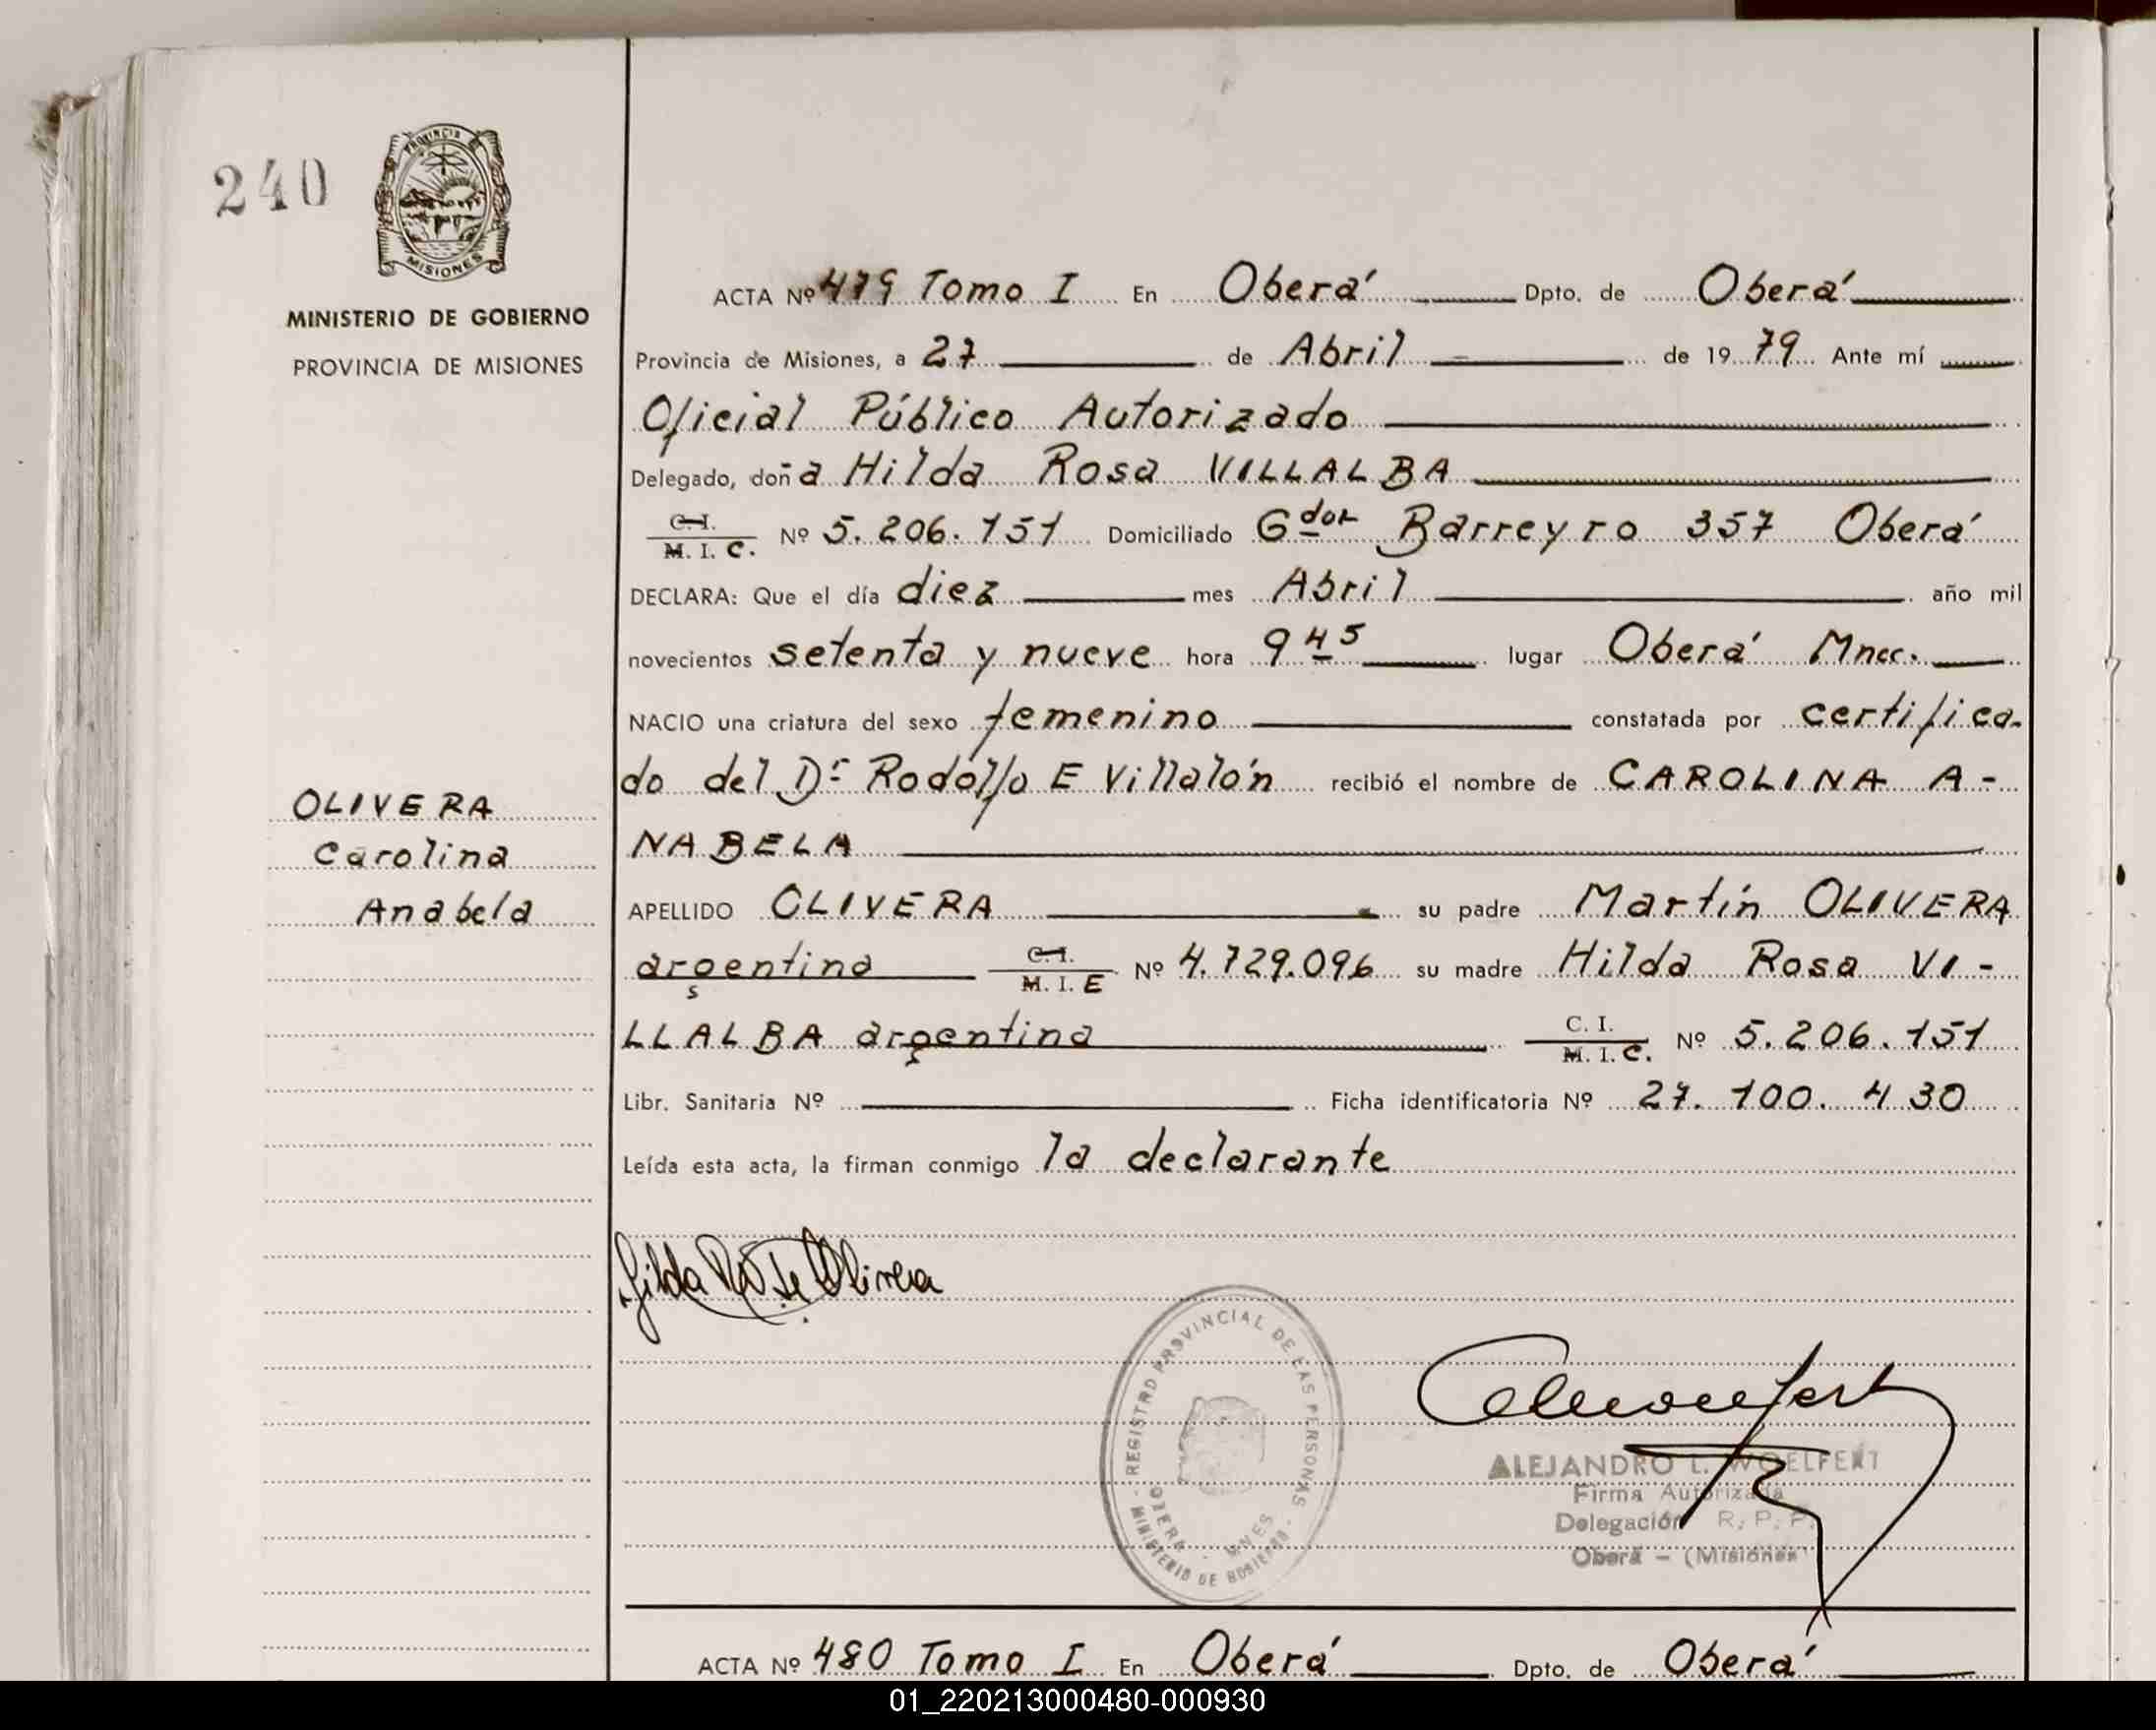 240
PROVINCIA
MISIONES
MINISTERIO DE GOBIERNO
PROVINCIA DE MISIONES
ACTA Nº 479 Tomo I En Oberá Dpto. de Oberá
Provincia de Misiones, a 27 de Abril de 1979 Ante mí
Oficial Público Autorizado
Delegado, doña Hilda Rosa VILLALBA
C.I.
M. I. C. Nº 5.206.151 Domiciliado Gdor Barreyro 357 Oberá
DECLARA: Que el día diez mes Abril año mil
novecientos setenta y nueve hora 9 45 lugar Oberá Mnes.
NACIO una criatura del sexo femenino constatada por certifica-
do del Dr Rodolfo E Villalón recibió el nombre de CAROLINA A-
NABELA
OLIVERA
Carolina
Anabela
APELLIDO OLIVERA su padre Martín OLIVERA
argentino C.I.
M. I. E Nº 4.729.096 su madre Hilda Rosa VI-
LLALBA argentina C. I.
M. I. C. Nº 5.206.151
Libr. Sanitaria Nº Ficha identificatoria Nº 27.100.430
Leída esta acta, la firman conmigo la declarante
Hilda R de Olivera
REGISTRO PROVINCIAL DE LAS PERSONAS
OBERA - MNES
MINISTERIO DE GOBIERNO
ALEJANDRO L. WOELFERT
Firma Autorizada
Delegación R. P. P.
Oberá - (Misiones)
ACTA Nº 480 Tomo I En Oberá Dpto. de Oberá
01_220213000480-000930